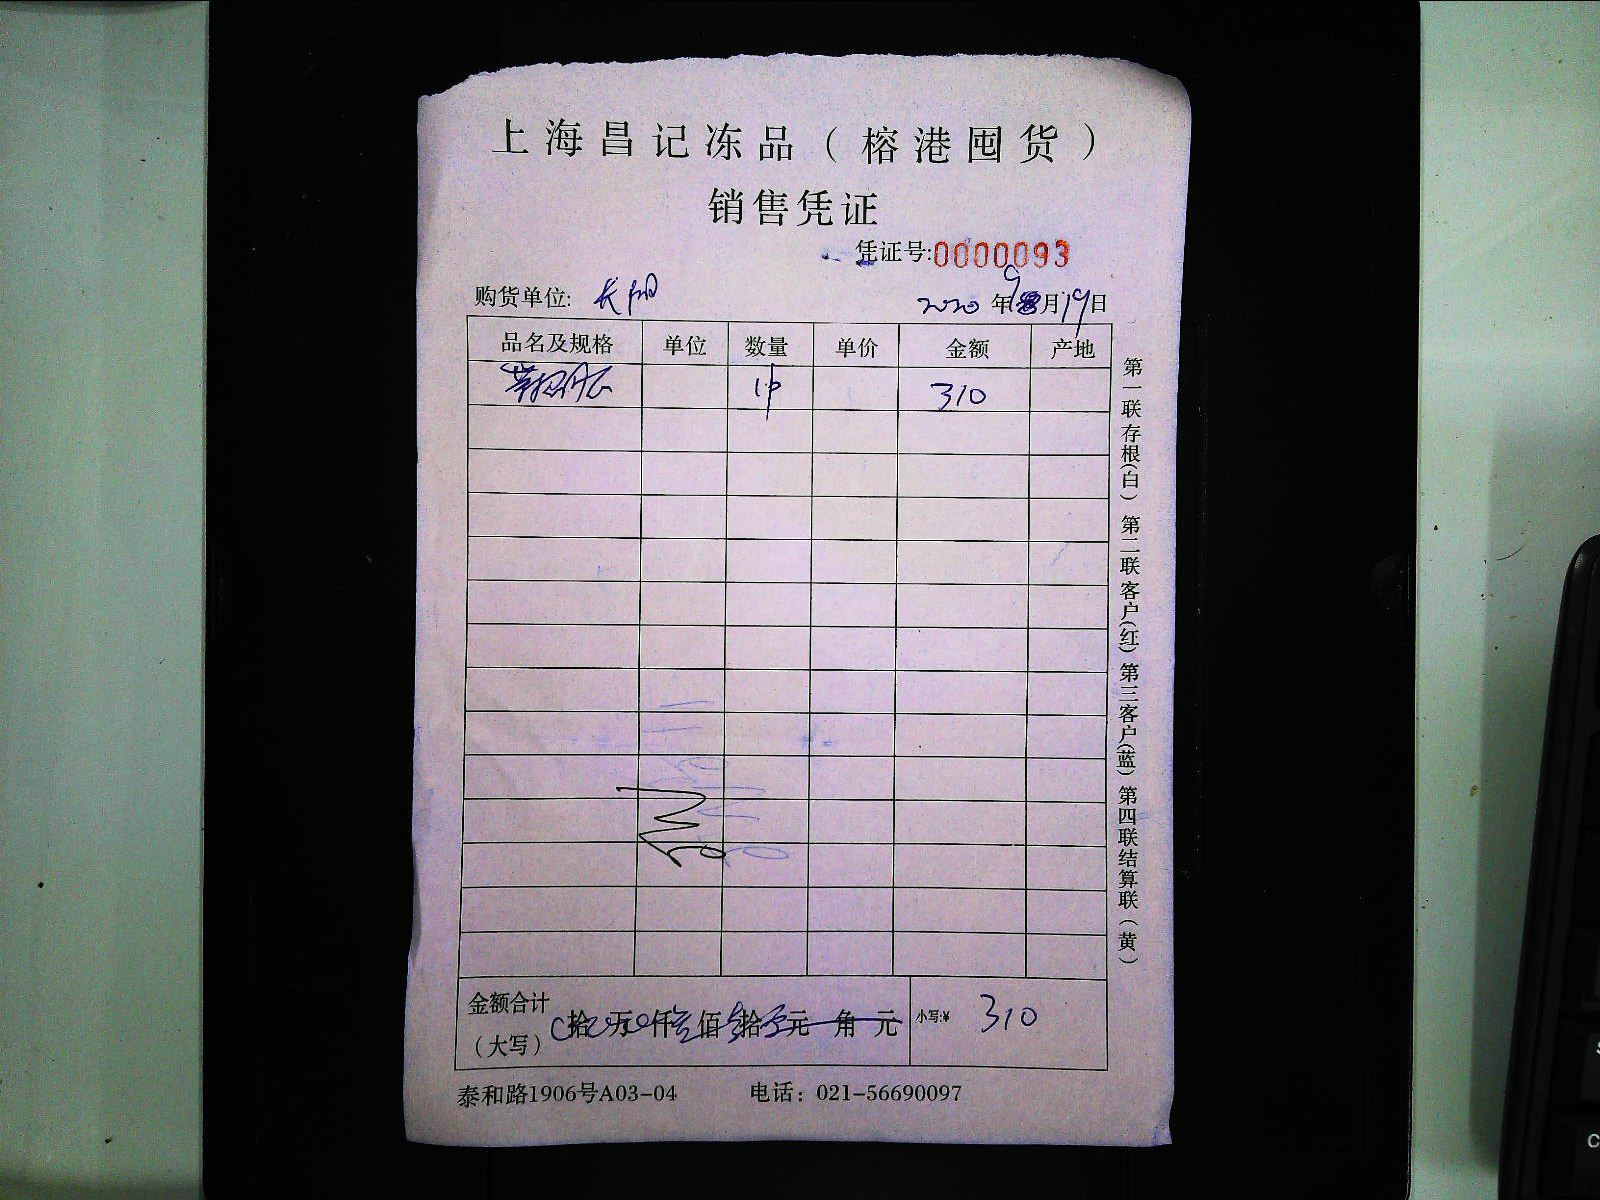 上海昌记冻品（榕港囤货）
销售凭证
凭证号:0000093
购货单位: 长阳 2020年9月19日
品名及规格 单位 数量 单价 金额 产地
1件 310
金额合计（大写） 拾 万 仟 佰 拾 元 角 元 小写:¥ 310
泰和路1906号A03-04 电话：021-56690097
第一联存根(白) 第二联客户(红) 第三客户(蓝) 第四联结算联(黄)